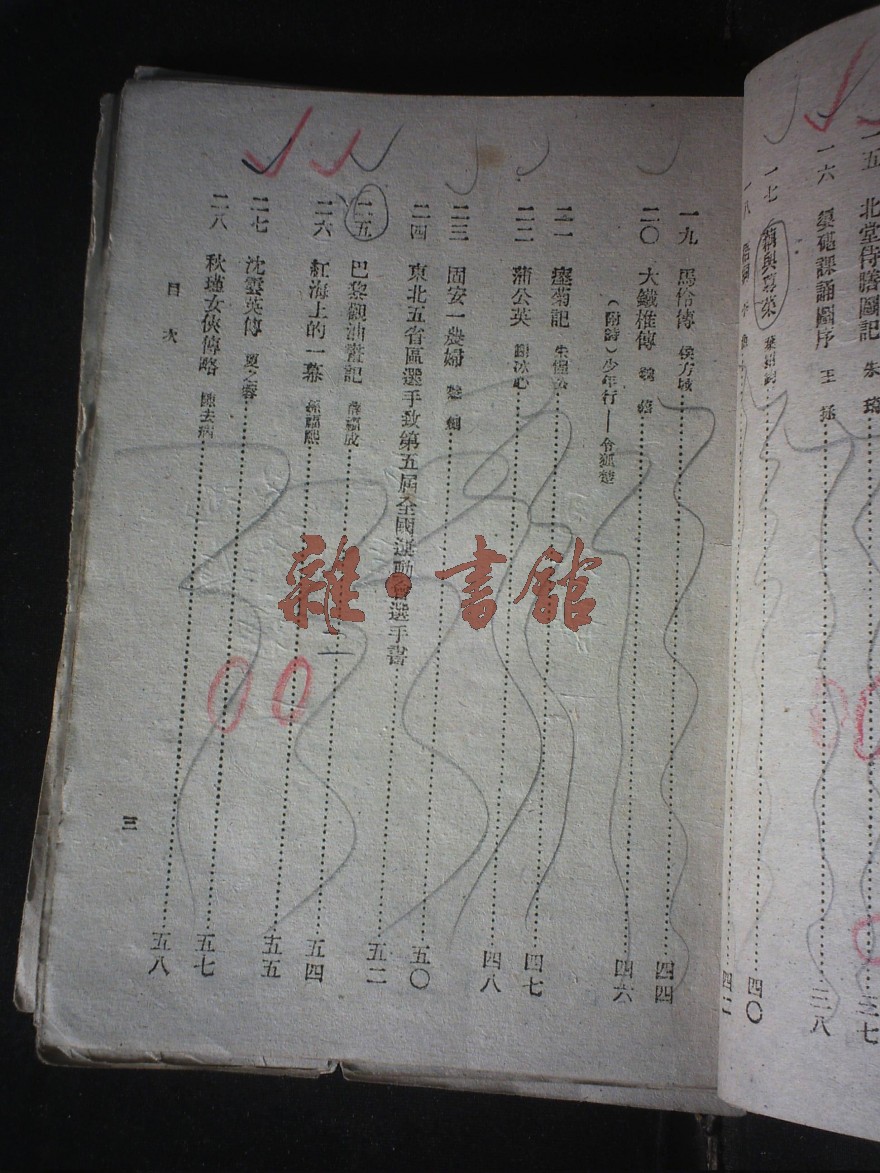 一五 北堂侍膳圖記 朱琦
三七
一六 課誦圖序 王拯
三八
一七 藕與蓴菜
四〇
一八
四二
一九 馬伶傳 侯方域
四四
二〇 大鐵椎傳 魏禧
四六
(附詩)少年行——令狐楚
二一 瘞菊記
四七
二二 蒲公英 謝冰心
四八
二三 固安一農婦
五〇
二四 東北五省區選手致第五屆全國運動會選手書
五二
二五 巴黎觀油畫記 薛福成
二六 紅海上的一幕 孫福熙
五四
二七 沈雲英傳 夏之蓉
五五
二八 秋瑾女俠傳略 陳去病
五七
五八
目次
三
雜·書館